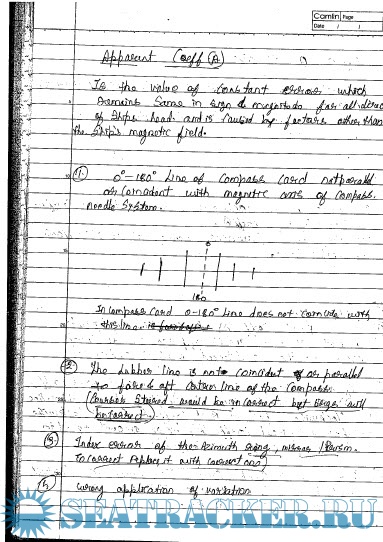 Camlin Page
Date / /
Apparent Coeff (A)
Is the value of constant error which
remains same in sign & magnitude for all direc
of ship's head and is caused by factors other than
the ship's magnetic field.
(1) 0°-180° line of compass card not parallel
or coincident with magnetic axis of compass
needle system.
0
180
In compass card 0-180° line does not coincide with
this line
(2) The lubber line is not coincident or as parallel
to fore & aft center line of the compass
(Courses steered would be incorrect but brgs will
be correct)
(3) Index error of the Azimuth ring, mirror / Prism.
Incorrect replace it with correct one
(5) wrong application of variation
SEATRACKER.RU